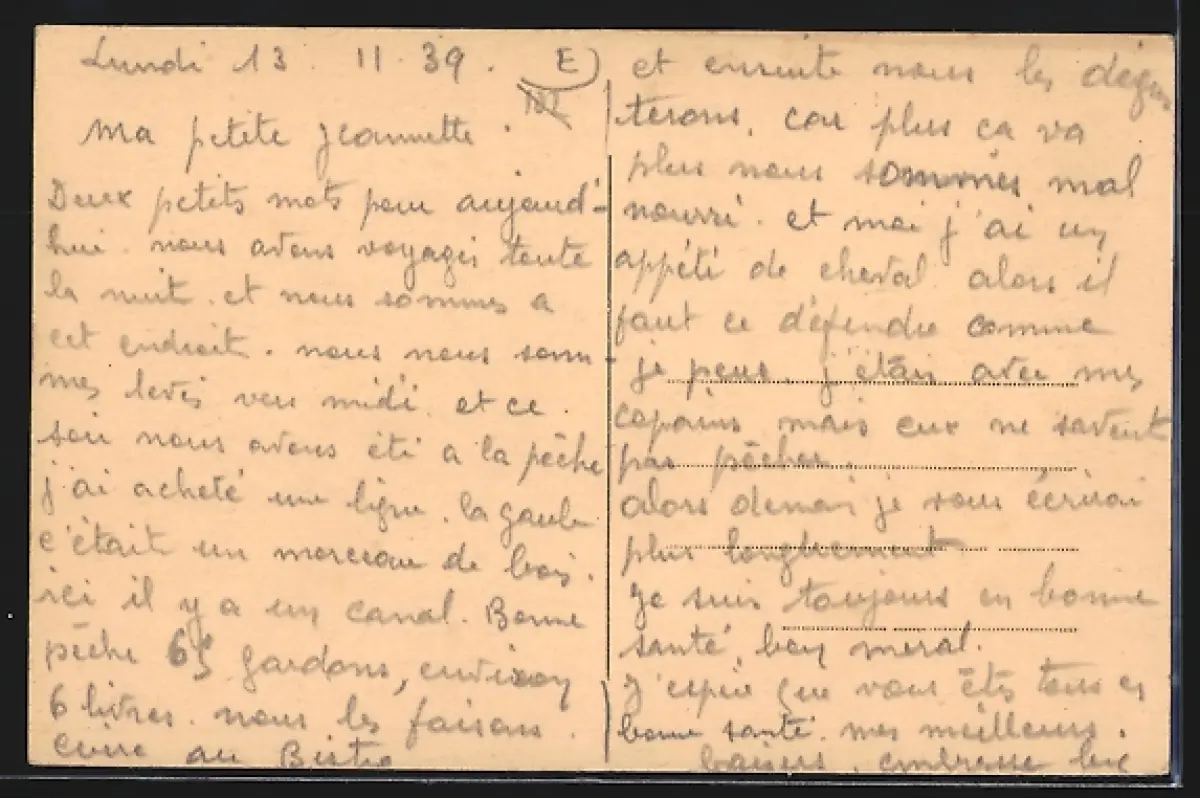 Lundi 13. 11. 39. E)
Ma petite Jeannette.
Deux petits mots pour aujourd'-
hui. nous avons voyagés toute
la nuit. et nous sommes a
cet endroit. nous nous som-
mes levés vers midi. et ce.
soir nous avons été a la pêche
j'ai acheté une ligne. la gaule
c'était un morceau de bois.
ici il y a un canal. Bonne
pêche 65 gardons, environ
6 livres. nous les faisons.
cuire au Bistro
et ensuite nous les dégus
terons, car plus ça va
plus nous sommes mal
nourri. et moi j'ai un
appéti de cheval. alors il
faut ce défendre comme
je peus. j'étais avec mes
copains mais eux ne savent
pas pêcher.
alors demain je vous écrirai
plus longuement
Je suis toujours en bonne
santé, bon moral.
J'espère que vous êtes tous en
bonne santé. mes meilleurs.
baisers. embrasse